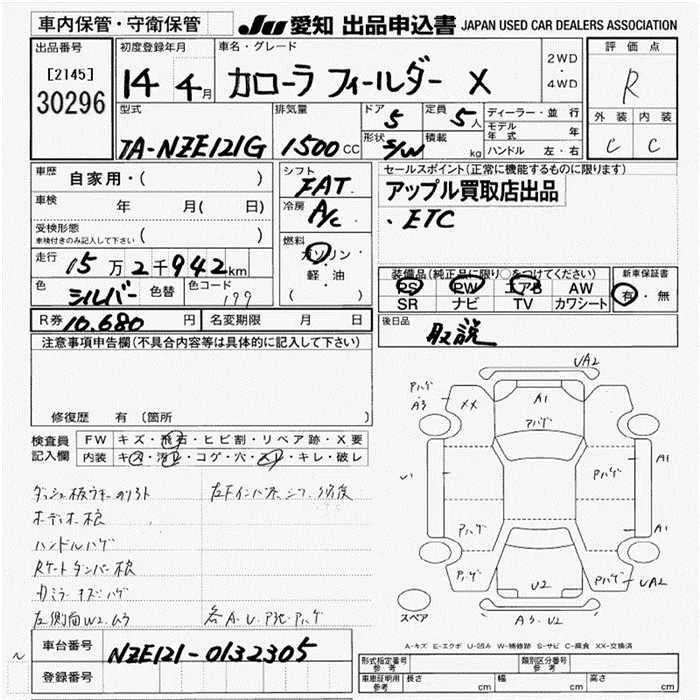 車内保管・守衛保管
JU 愛知 出品申込書 JAPAN USED CAR DEALERS ASSOCIATION
出品番号
[2145]
30296
初度登録年月
14 4月
車名・グレード
カローラ フィールダー X
2WD
・
4WD
評価点
R
外装 内装
C C
型式
TA-NZE121G
排気量
1500 CC
ドア
5
形状
S/W
定員
5人
積載
kg
ディーラー・並行
モデル年式 年
ハンドル 左・右
車歴 自家用・( )
車検 年 月( 日)
受検形態
車検付きのみ記入して下さい ( )
走行 15万2千942km
色 シルバー 色替 色コード 199
シフト
FAT
冷房
A/C
燃料
ガソリン・
軽・油
( )
セールスポイント(正常に機能するものに限ります)
アップル買取店出品
・ETC
装備品(純正品に限り○をつけてください)
PS PW エアB AW
SR ナビ TV カワシート
新車保証書
有・無
後日品
取説
R券 10,680 円 名変期限 月 日
注意事項申告欄(不具合内容等は具体的に記入して下さい)
修復歴 有 (箇所
検査員記入欄
FW キズ・飛石・ヒビ割・リペア跡・X要
内装 キズ・汚れ・コゲ・穴・スレ・キレ・破レ
オーディオ痕
ハンドルハゲ
左側面W2ムラ
UA2
アハゲ
A3
XX
A1
アハゲ
Pハゲ
A1
A1
アハゲ
アハゲ
Pハゲ
UA2
U2
A3・U2
スペア
A-キズ E-エクボ U-凹み W-補修跡 S-サビ C-腐食 XX-交換済
車台番号 NZE121-0132305
登録番号
型式指定番号 参考
類別区分番号 参考
車庫証明用 参考 長さ cm 幅 cm 高さ cm